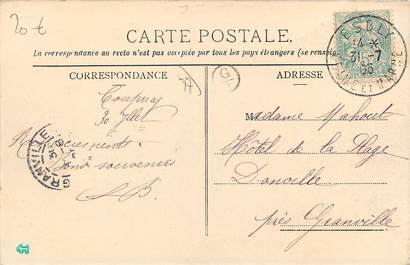 20 €
CARTE POSTALE
La correspondance au recto n'est pas acceptée par tous les pays étrangers (se renseig
CORRESPONDANCE
ADRESSE
ESBLY
31-7
SEINE ET MARNE
30 Jllet
souvenirs
GRANVILLE
Madame Mahout
Hôtel de la Plage
Donville
près Granville